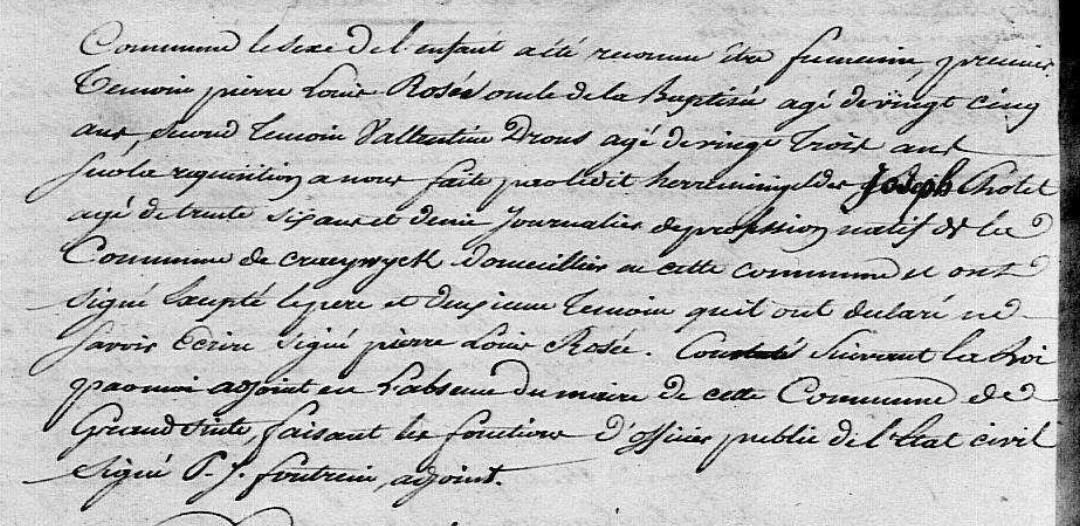 Commune le sexe de l'enfant a été reconnu être femenin, premier
Temoin pierre Louis Rosée oncle de la Baptisée agé de vingt cinq
ans, second Temoin Vallentin Drous agé de vingt trois ans
sur la requisition a nous faite par ledit herremingelder Joseph Cholet
agé de trente six ans et demie Journalier de profession natif de la
Commune de craeywyck domicillier en cette commune et ont
signé Excepté le pere et deuxieme Temoin qu'il ont declaré ne
savoir Ecrire signé pierre Louis Rosée. Constaté suivant la Loi
par moi adjoint en L'absence du maire de cette Commune de
Grand Sinte faisant les fonctions d'officier public de l'Etat civil
signé P. J. foutrein, adjoint.